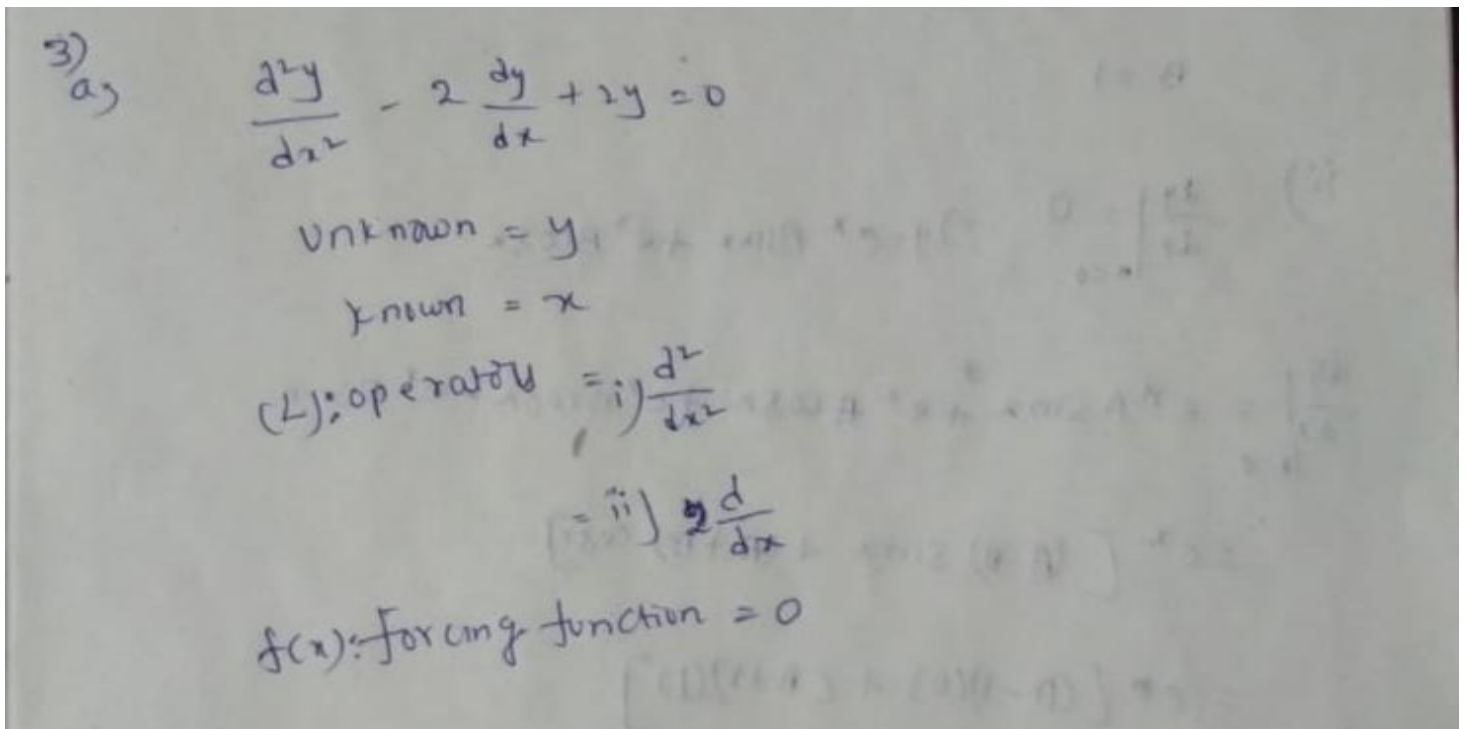 3)
a) d²y/dx² - 2 dy/dx + 2y = 0
Unknown = y
known = x
(L): operators = i) d²/dx²
= ii) 2 d/dx
f(x): Forcing function = 0